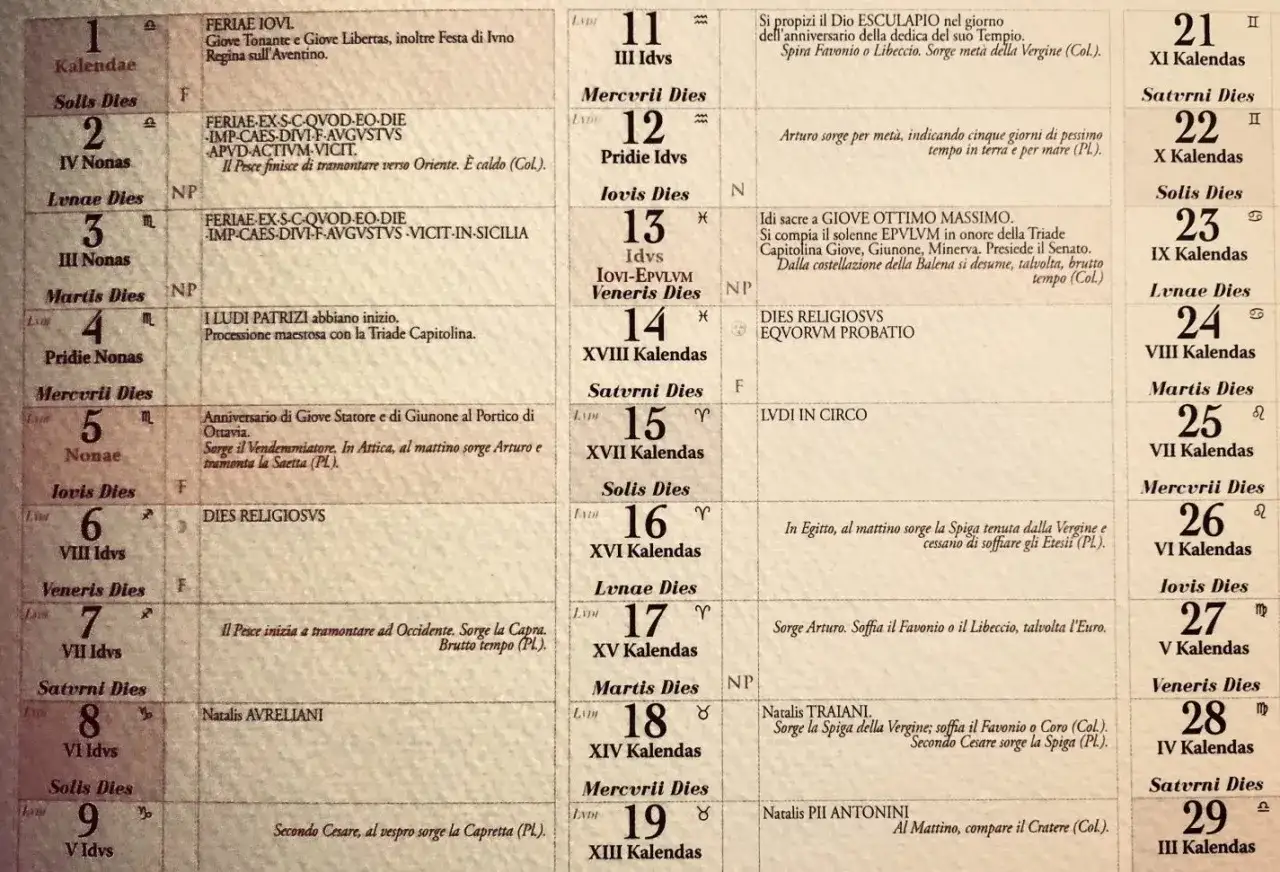 1
Kalendae
Solis Dies
F
FERIAE IOVI.
Giove Tonante e Giove Libertas, inoltre Festa di Ivno
Regina sull'Aventino.
2
IV Nonas
Lvnae Dies
NP
FERIAE·EX·S·C·QVOD·EO·DIE
·IMP·CAES·DIVI·F·AVGVSTVS
·APVD·ACTIVM·VICIT.
Il Pesce finisce di tramontare verso Oriente. È caldo (Col.).
3
III Nonas
Martis Dies
NP
FERIAE·EX·S·C·QVOD·EO·DIE
·IMP·CAES·DIVI·F·AVGVSTVS ·VICIT·IN·SICILIA
Lvdi
4
Pridie Nonas
Mercvrii Dies
I LUDI PATRIZI abbiano inizio.
Processione maestosa con la Triade Capitolina.
Lvdi
5
Nonae
Iovis Dies
F
Anniversario di Giove Statore e di Giunone al Portico di
Ottavia.
Sorge il Vendemmiatore. In Attica, al mattino sorge Arturo e
tramonta la Saetta (Pl.).
Lvdi
6
VIII Idvs
Veneris Dies
F
DIES RELIGIOSVS
Lvdi
7
VII Idvs
Satvrni Dies
Il Pesce inizia a tramontare ad Occidente. Sorge la Capra.
Brutto tempo (Pl.).
Lvdi
8
VI Idvs
Solis Dies
Natalis AVRELIANI
Lvdi
9
V Idvs
Secondo Cesare, al vespro sorge la Capretta (Pl.).
Lvdi
11
III Idvs
Mercvrii Dies
Si propizi il Dio ESCULAPIO nel giorno
dell'anniversario della dedica del suo Tempio.
Spira Favonio o Libeccio. Sorge metà della Vergine (Col.).
Lvdi
12
Pridie Idvs
Iovis Dies
N
Arturo sorge per metà, indicando cinque giorni di pessimo
tempo in terra e per mare (Pl.).
13
Idvs
Iovi-Epvlvm
Veneris Dies
NP
Idi sacre a GIOVE OTTIMO MASSIMO.
Si compia il solenne EPVLVM in onore della Triade
Capitolina Giove, Giunone, Minerva. Presiede il Senato.
Dalla costellazione della Balena si desume, talvolta, brutto
tempo (Col.)
14
XVIII Kalendas
Satvrni Dies
F
DIES RELIGIOSVS
EQVORVM PROBATIO
Lvdi
15
XVII Kalendas
Solis Dies
LVDI IN CIRCO
Lvdi
16
XVI Kalendas
Lvnae Dies
In Egitto, al mattino sorge la Spiga tenuta dalla Vergine e
cessano di soffiare gli Etesii (Pl.).
Lvdi
17
XV Kalendas
Martis Dies
NP
Sorge Arturo. Soffia il Favonio o il Libeccio, talvolta l'Euro.
Lvdi
18
XIV Kalendas
Mercvrii Dies
Natalis TRAIANI.
Sorge la Spiga della Vergine; soffia il Favonio o Coro (Col.).
Secondo Cesare sorge la Spiga (Pl.).
Lvdi
19
XIII Kalendas
Natalis PII ANTONINI
Al Mattino, compare il Cratere (Col.).
21
XI Kalendas
Satvrni Dies
22
X Kalendas
Solis Dies
23
IX Kalendas
Lvnae Dies
24
VIII Kalendas
Martis Dies
25
VII Kalendas
Mercvrii Dies
26
VI Kalendas
Iovis Dies
27
V Kalendas
Veneris Dies
28
IV Kalendas
Satvrni Dies
29
III Kalendas